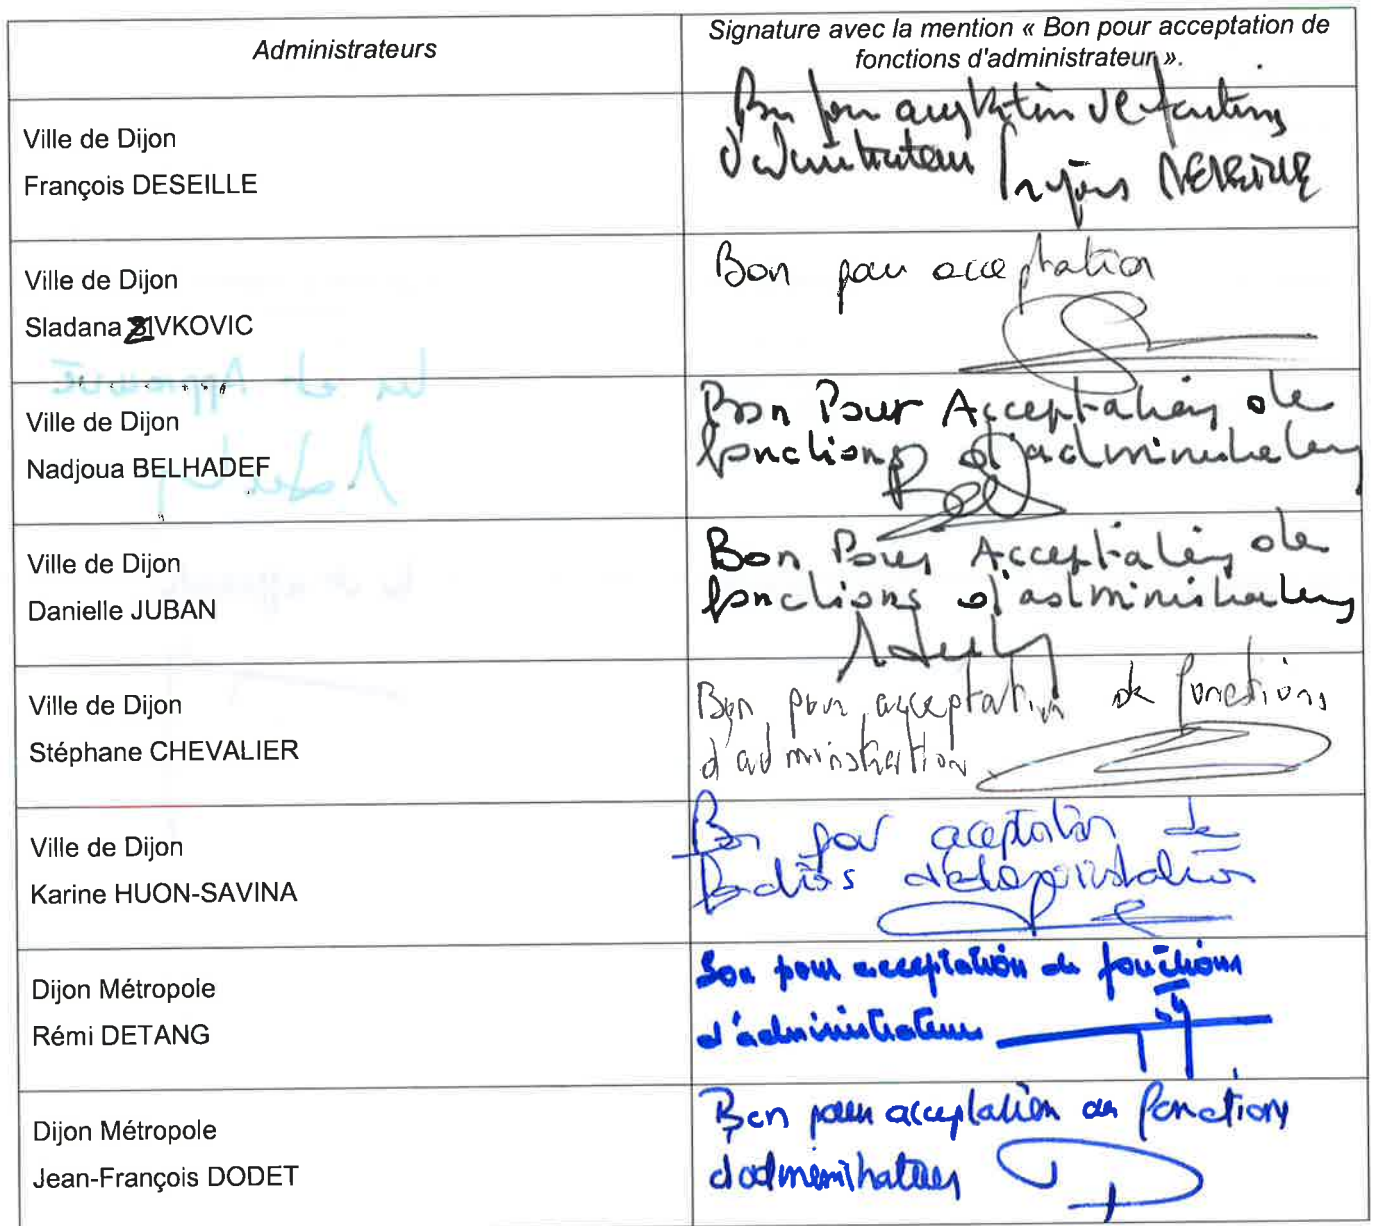 Administrateurs
Signature avec la mention « Bon pour acceptation de
fonctions d'administrateur ».
Ville de Dijon
François DESEILLE
Bon pour acceptation de fonctions
d'administrateur François DESEILLE
Ville de Dijon
Sladana ZIVKOVIC
Bon pour acceptation
Ville de Dijon
Nadjoua BELHADEF
Bon Pour Acceptation de
fonctions d'administrateur
Bel
Ville de Dijon
Danielle JUBAN
Bon Pour Acceptation de
fonctions d'administrateur
Ville de Dijon
Stéphane CHEVALIER
Bon pour acceptation de fonctions
d'administration
Ville de Dijon
Karine HUON-SAVINA
Bon pour acceptation de
Dijon Métropole
Rémi DETANG
Bon pour acceptation de fonctions
d'administrateur
Dijon Métropole
Jean-François DODET
Bon pour acceptation de fonctions
d'administrateur
Lu et Approuvé